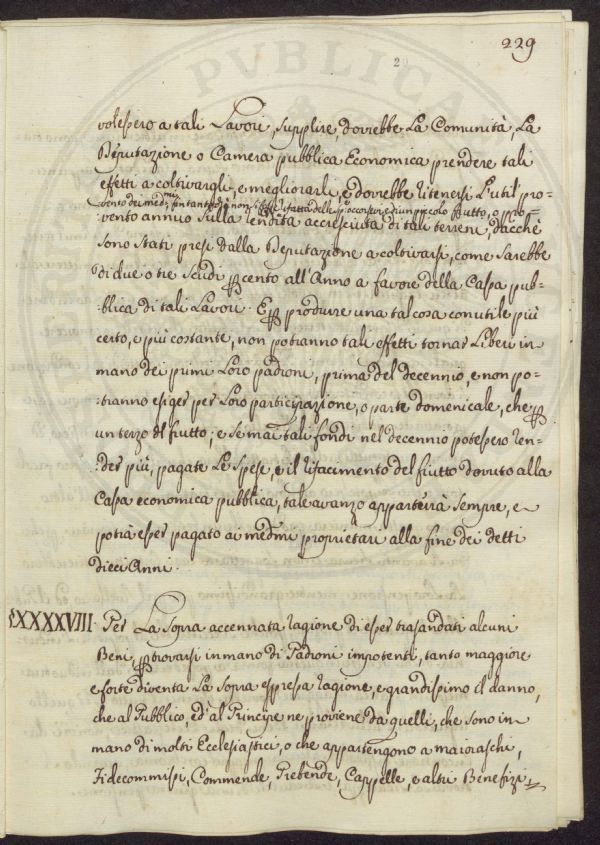 229
volessero a tali Lavori, supplire, dovrebbe La Comunità, La
Deputazione o Camera pubblica Economica prendere tali
effetti a coltivargli, e migliorarli, e dovrebbe ritenersi L'util pro-
vento dei medmi, o un piccolo frutto, o pro-
vento annuo sulla rendita accresciuta di tali terreni, dacchè
sono stati presi dalla Deputazione a coltivarsi, come sarebbe
di due o tre Scudi p cento all'Anno a favore della Cassa pub-
:blica di tali Lavori. E p produrre una tal cosa con utile più
certo, e più costante, non potranno tali effetti tornar Liberi in
mano dei primi Loro padroni, prima del decennio, e non po-
:tranno esiger per Loro participazione, o parte domenicale, che p
un terzo del frutto; e se mai tali fondi nel decennio potessero ren-
:der più, pagate Le spese, e il rifacimento del frutto dovuto alla
Cassa economica pubblica, tale avanzo apparterrà sempre, e
potrà esser pagato ai medmi proprietari alla fine dei detti
dieci Anni.
LXXXXVIII. Per La sopra accennata ragione di esser trasandati alcuni
Beni, p trovarsi in mano di Padroni impotenti, tanto maggiore
e forte diventa La sopra espressa ragione, e grandissimo il danno,
che al Pubblico, ed al Principe ne proviene da quelli, che sono in
mano di molti Ecclesiastici, o che appartengono a maioraschi,
Fidecommissi, Commende, Prebende, Cappelle, e altri Benefizi,
PVBLICA